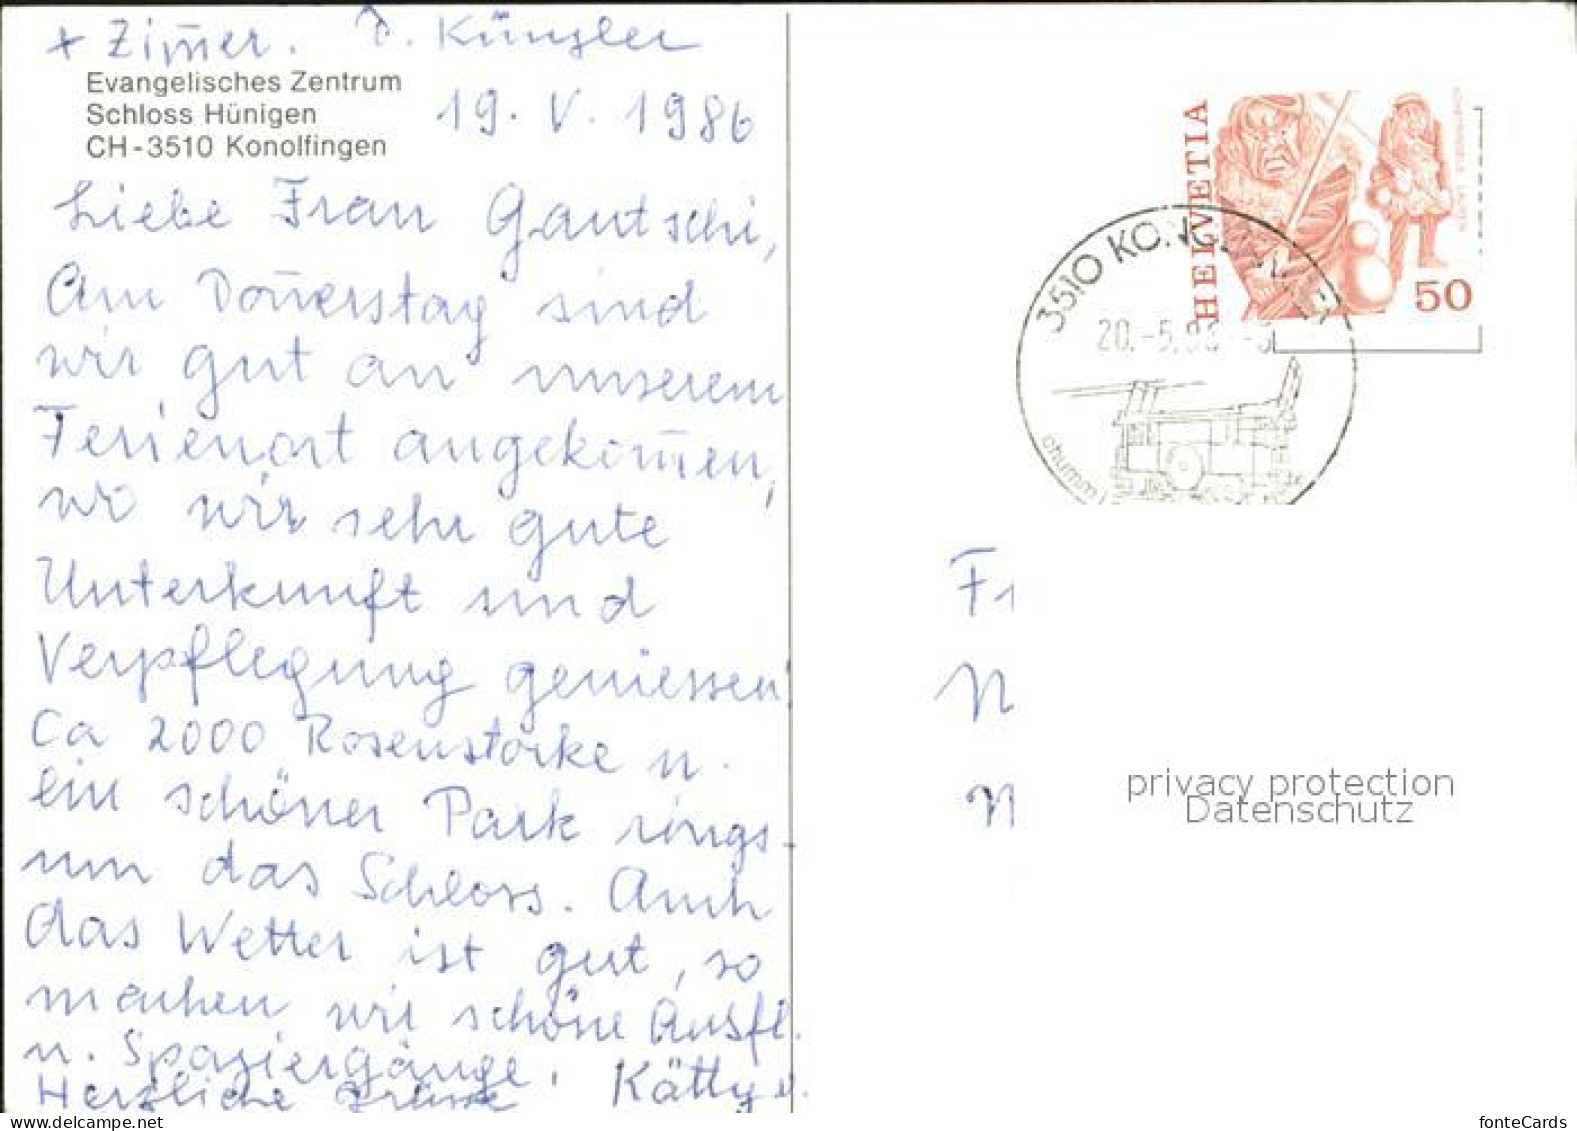 + Zim̄er. D. Künzler
Evangelisches Zentrum
Schloss Hünigen
CH-3510 Konolfingen
19. V. 1986
Liebe Frau Gautschi,
Am Don̄erstag sind
wir gut an unserem
Ferienort angekom̄en,
wo wir sehr gute
Unterkunft und
Verpflegung geniessen!
Ca 2000 Rosenstöcke u.
ein schöner Park rings-
um das Schloss. Auch
das Wetter ist gut, so
machen wir schöne Ausfl.
u. Spaziergänge.
Herzliche Grüsse Kätty u.
HELVETIA
50
3510 KONOLFINGEN
20.-5.86
chumm
Fr
N
N
privacy protection
Datenschutz
fonteCards